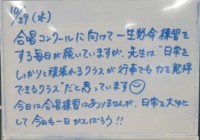 10/29(水)
合唱コンクールに向けて一生懸命練習を
する毎日が続いていますが、先生は"日常を
しっかりと頑張れるクラスが行事でも力を発揮
できるクラス"だと思っています
今日は合唱練習はありませんが、日常を大切にして
今日も一日がんばろう!!